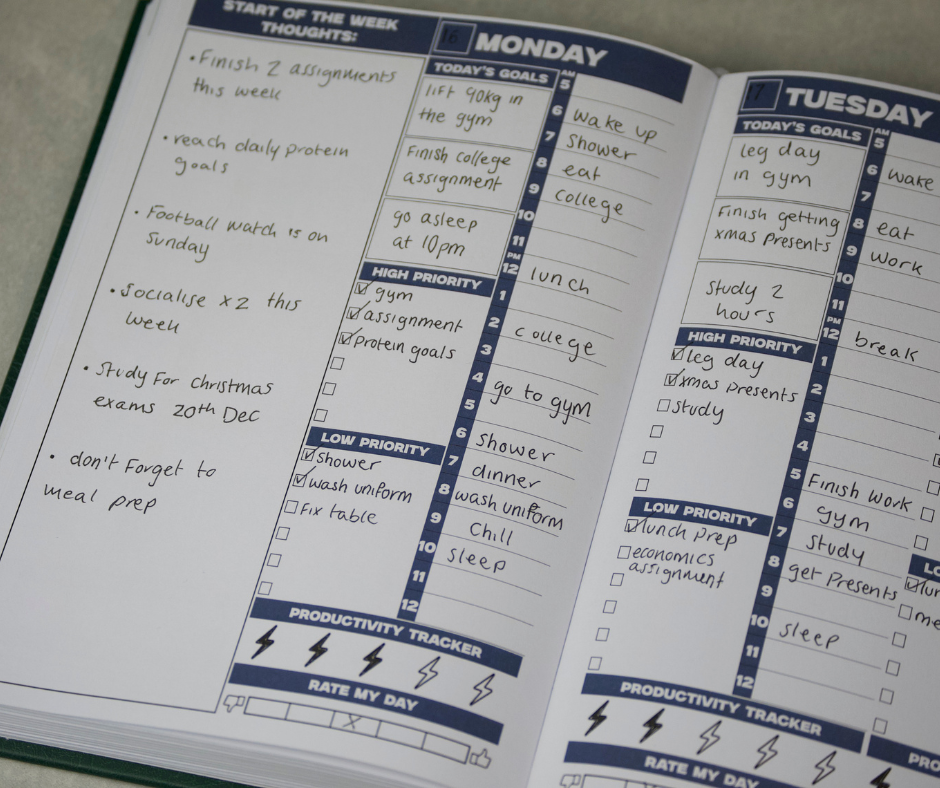 START OF THE WEEK
THOUGHTS:
• Finish 2 assignments
this week
• reach daily protein
goals
• Football watch is on
Sunday
• Socialise x2 this
week
• Study For Christmas
exams 20th Dec
• don't Forget to
meal prep
16 MONDAY
TODAY'S GOALS
lift 90kg in
the gym
Finish college
assignment
go asleep
at 10pm
HIGH PRIORITY
gym
assignment
Protein goals
LOW PRIORITY
shower
wash uniform
Fix table
AM
5
6 wake up
7 shower
8 eat
9 college
10
11
PM
12 lunch
1
2 college
3
4 go to gym
5
6 shower
7 dinner
8 wash uniform
9 Chill
10 sleep
11
12
PRODUCTIVITY TRACKER
RATE MY DAY
X
17 TUESDAY
TODAY'S GOALS
leg day
in gym
Finish getting
xmas Presents
Study 2
hours
HIGH PRIORITY
leg day
xmas Presents
study
LOW PRIORITY
lunch prep
economics
assignment
AM
5
6 wake
7
8 eat
9 work
10
11
PM
12 break
1
2
3
4
5 Finish work
6 gym
7 Study
8 get Presents
9
10 sleep
11
12
PRODUCTIVITY TRACKER
RATE MY DAY